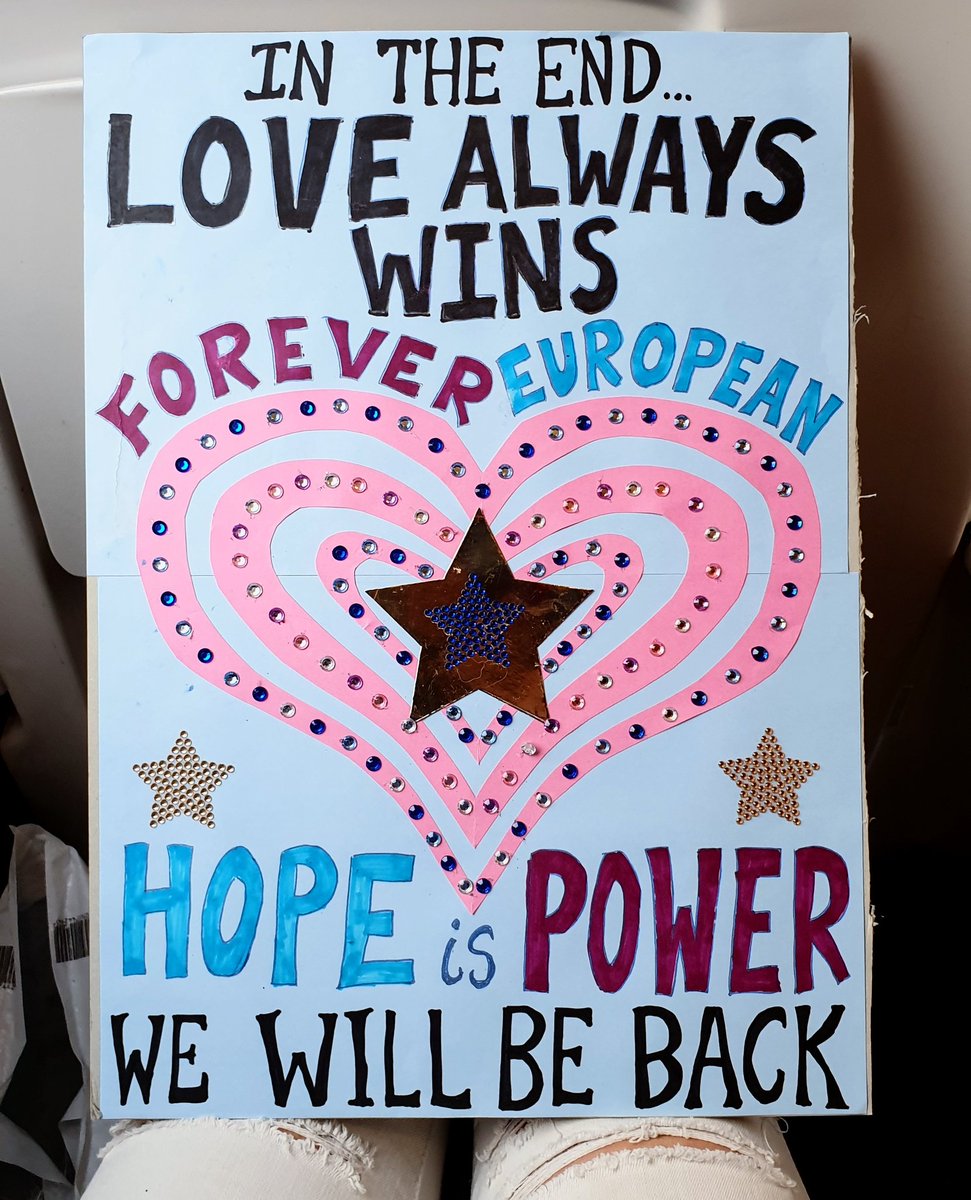 IN THE END...
LOVE ALWAYS
WINS
FOREVER EUROPEAN
HOPE is POWER
WE WILL BE BACK